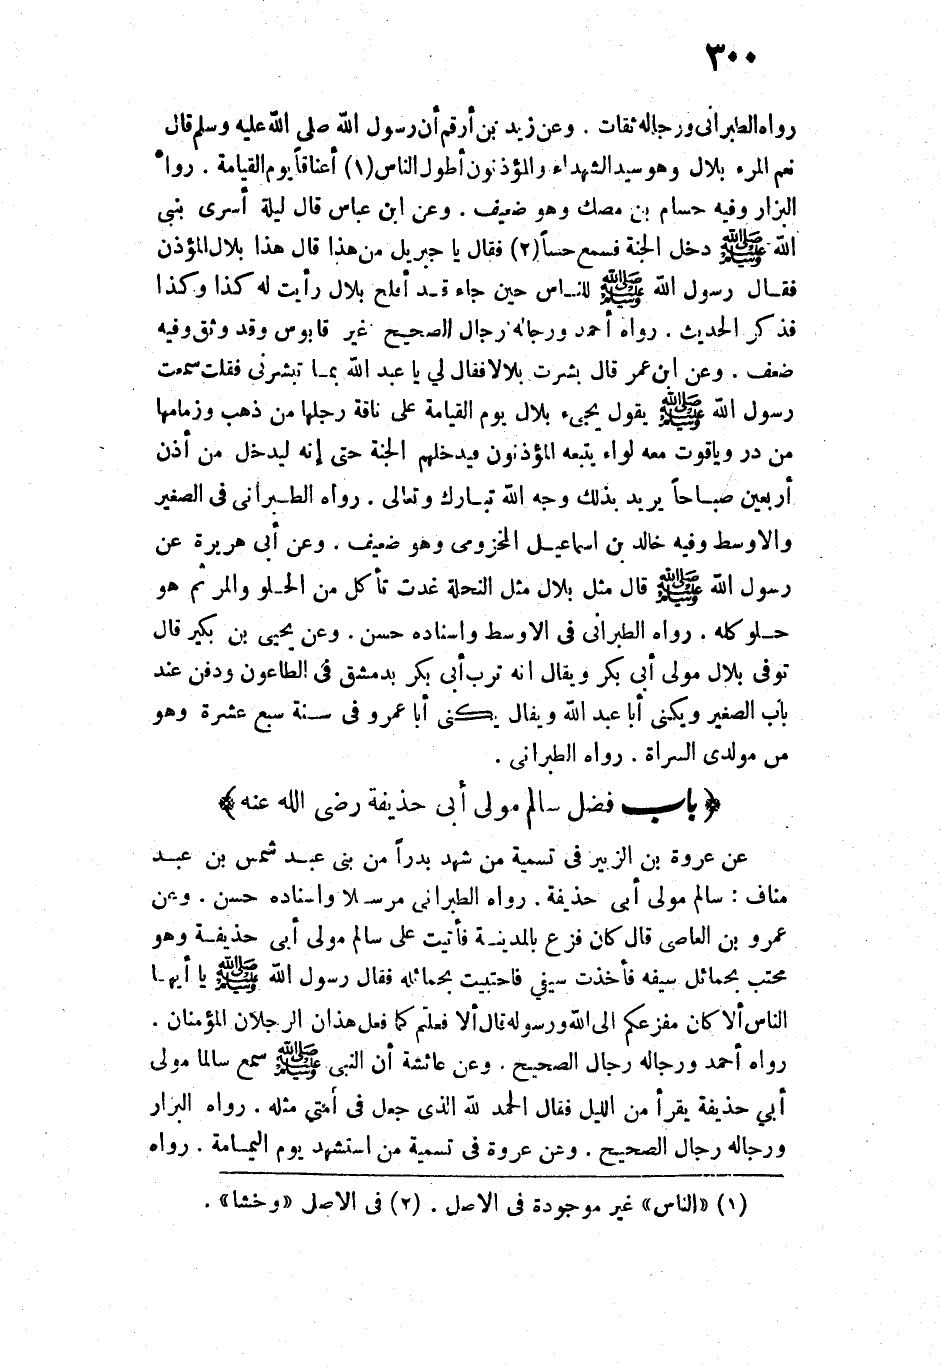 ٣٠٠
رواه الطبرانى ورجاله ثقات . وعن زيد بن أرقم أن رسول الله صلى الله عليه وسلم قال
نعم المرء بلال وهو سيد الشهداء والمؤذنون أطول الناس (١) أعناقاً يوم القيامة . رواه
البزار وفيه حسام بن مصك وهو ضعيف . وعن ابن عباس قال ليلة أسرى بنبى
الله ﷺ دخل الجنة فسمع حساً (٢) فقال يا جبريل من هذا قال هذا بلال المؤذن
فقال رسول الله ﷺ للناس حين جاء قد أفلح بلال رأيت له كذا وكذا
فذكر الحديث . رواه أحمد ورجاله رجال الصحيح غير قابوس وقد وثق وفيه
ضعف . وعن ابن عمر قال بشرت بلالا فقال لي يا عبد الله بما تبشرنى فقلت سمعت
رسول الله ﷺ يقول يجىء بلال يوم القيامة على ناقة رحلها من ذهب وزمامها
من در وياقوت معه لواء يتبعه المؤذنون فيدخلهم الجنة حتى إنه ليدخل من أذن
أربعين صباحاً يريد بذلك وجه الله تبارك وتعالى . رواه الطبرانى فى الصغير
والاوسط وفيه خالد بن اسماعيل المخزومى وهو ضعيف . وعن أبى هريرة عن
رسول الله ﷺ قال مثل بلال مثل النحلة غدت تأكل من الحلو والمر ثم هو
حلو كله . رواه الطبرانى فى الاوسط واسناده حسن . وعن يحيى بن بكير قال
توفى بلال مولى أبى بكر ويقال انه ترب أبى بكر بدمشق فى الطاعون ودفن عند
باب الصغير ويكنى أبا عبد الله ويقال يكنى أبا عمرو فى سنة سبع عشرة وهو
من مولدى السراة . رواه الطبرانى .
﴿ باب فضل سالم مولى أبى حذيفة رضى الله عنه ﴾
عن عروة بن الزبير فى تسمية من شهد بدراً من بنى عبد شمس بن عبد
مناف : سالم مولى أبى حذيفة . رواه الطبرانى مرسلا واسناده حسن . وعن
عمرو بن العاصى قال كان فزع بالمدينة فأتيت على سالم مولى أبى حذيفة وهو
محتب بحمائل سيفه فأخذت سيفي فاحتبيت بحمائله فقال رسول الله ﷺ يا أيها
الناس ألا كان مفزعكم الى الله ورسوله قال ألا فعلتم كما فعل هذان الرجلان المؤمنان .
رواه أحمد ورجاله رجال الصحيح . وعن عائشة أن النبى ﷺ سمع سالما مولى
أبي حذيفة يقرأ من الليل فقال الحمد لله الذى جعل فى أمتي مثله . رواه البزار
ورجاله رجال الصحيح . وعن عروة فى تسمية من استشهد يوم اليمامة . رواه
(١) «الناس» غير موجودة فى الاصل . (٢) فى الاصل «وخشا» .